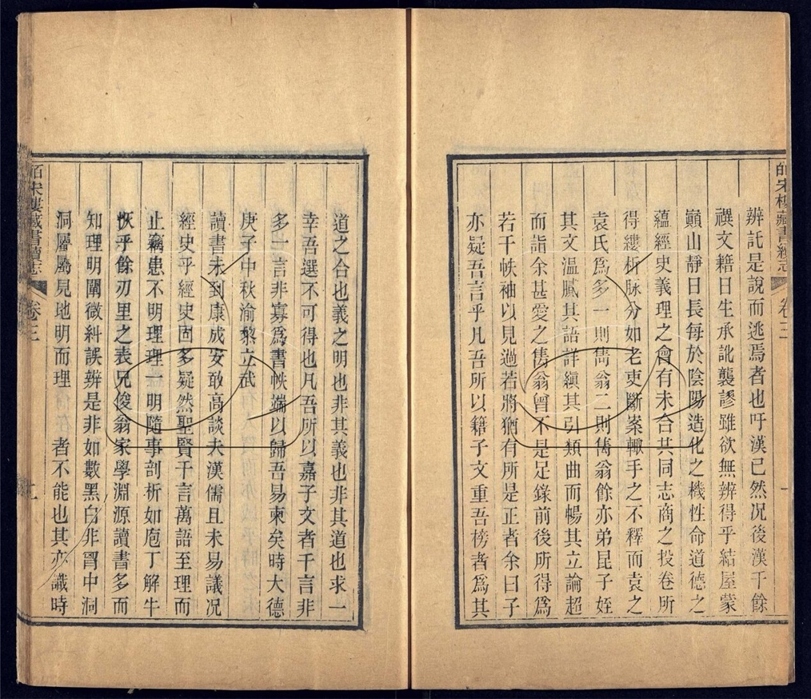 皕宋樓藏書續志 卷三
辨託是說而逃焉者也吁漢已然況後漢千餘
禩文籍日生承訛襲謬雖欲無辨得乎結屋蒙
巔山靜日長每於陰陽造化之機性命道德之
蘊經史義理之會有未合其同志商之投卷所
得縷析脉分如老吏斷案輙手之不釋而袁之
袁氏爲多一則雋翁二則雋翁餘亦弟昆子姪
其文溫膩其語詳縝其引類曲而暢其立論超
而詣余甚愛之雋翁曾不是足錄前後所得爲
若干帙袖以見過若將猶有所是正者余曰子
亦疑吾言乎凡吾所以籍子文重吾榜者爲其
道之合也義之明也非其義也非其道也求一
幸吾選不可得也凡吾所以嘉子文者千言非
多一言非寡爲書帙端以歸吾易東矣時大德
庚子中秋渝黎立武
讀書未到康成安敢高談夫漢儒且未易議況
經史乎經史固多疑然聖賢千言萬語至理而
止竊患不明理理一明隨事剖析如庖丁解牛
恢乎餘刃里之表兄俊翁家學淵源讀書多而
知理明闡微糾誤辨是非如數黑白非胷中洞
洞屬屬見地明而理 者不能也其亦識時
皕宋樓藏書續志 卷三